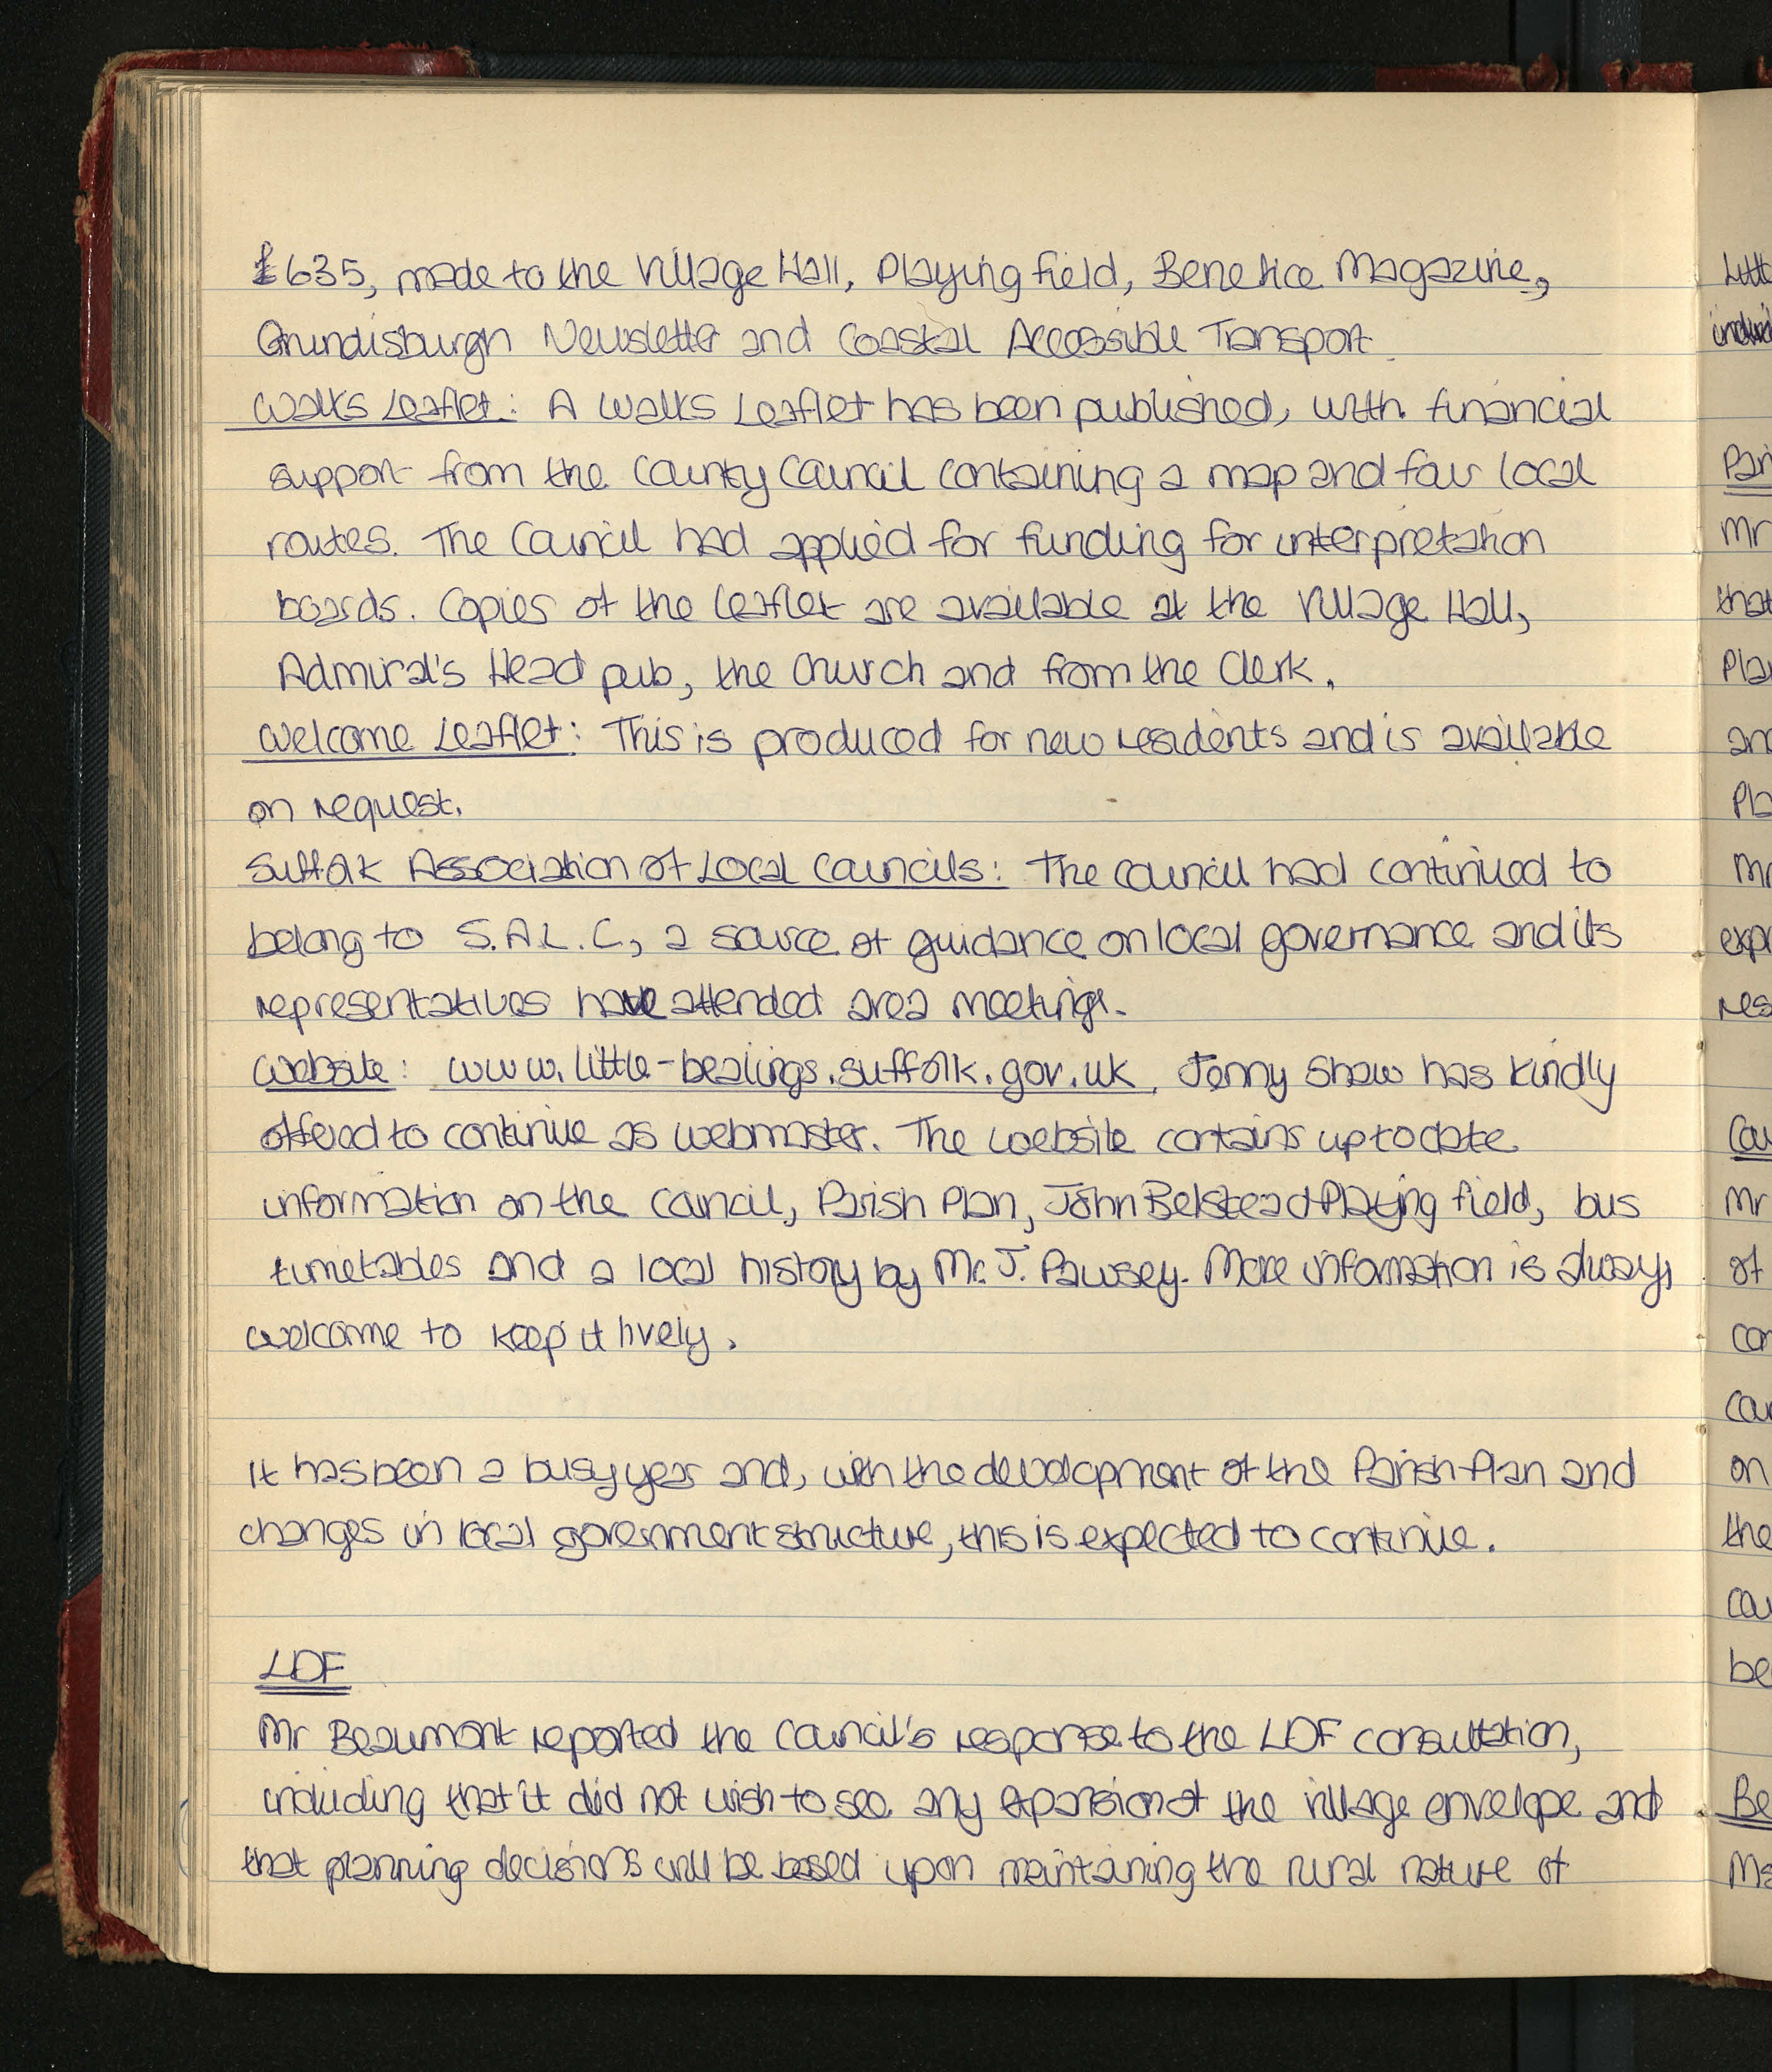 £635, made to the Village Hall, Playing Field, Benefice Magazine,
Grundisburgh Newsletter and Coastal Accessible Transport.
Walks Leaflet: A Walks Leaflet has been published, with financial
support from the County Council containing a map and four local
routes. The Council had applied for funding for interpretation
boards. Copies of the leaflet are available at the Village Hall,
Admiral's Head pub, the Church and from the Clerk.
Welcome Leaflet: This is produced for new residents and is available
on request.
Suffolk Association of Local Councils: The Council had continued to
belong to S.A.L.C, a source of guidance on local governance and its
representatives have attended area meetings.
Website: www.little-bealings.suffolk.gov.uk. Jenny Shaw has kindly
offered to continue as webmaster. The website contains up to date
information on the Council, Parish Plan, John Belstead Playing Field, bus
timetables and a local history by Mr. J. Pawsey. More information is always
welcome to keep it lively.
It has been a busy year and, with the development of the Parish Plan and
changes in local government structure, this is expected to continue.
LDF
Mr Beaumont reported the Council's response to the LDF consultation,
including that it did not wish to see any expansion of the village envelope and
that planning decisions will be based upon maintaining the rural nature of
Mr
that
of
on
the
be